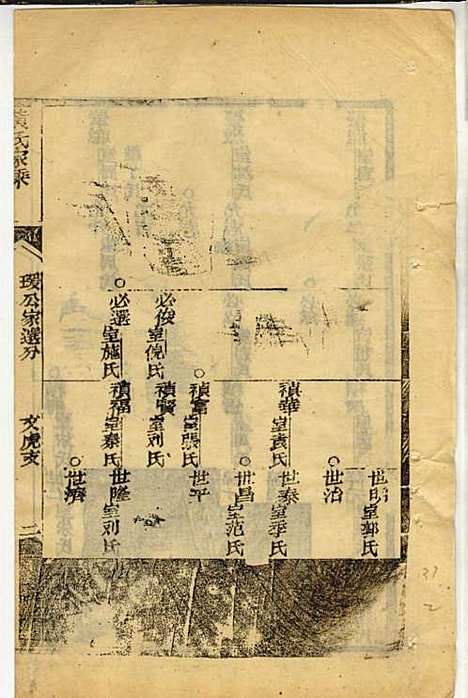 世昭室郭氏
世治
禎華室袁氏
世泰室季氏
世昌室范氏
禎富室張氏
世平
必俊室倪氏
禎賢室刘氏
必選室施氏
禎福室秦氏
世隆室刘氏
世濟
黃氏家乘
瑗公家選分
文虎支
二
31
2